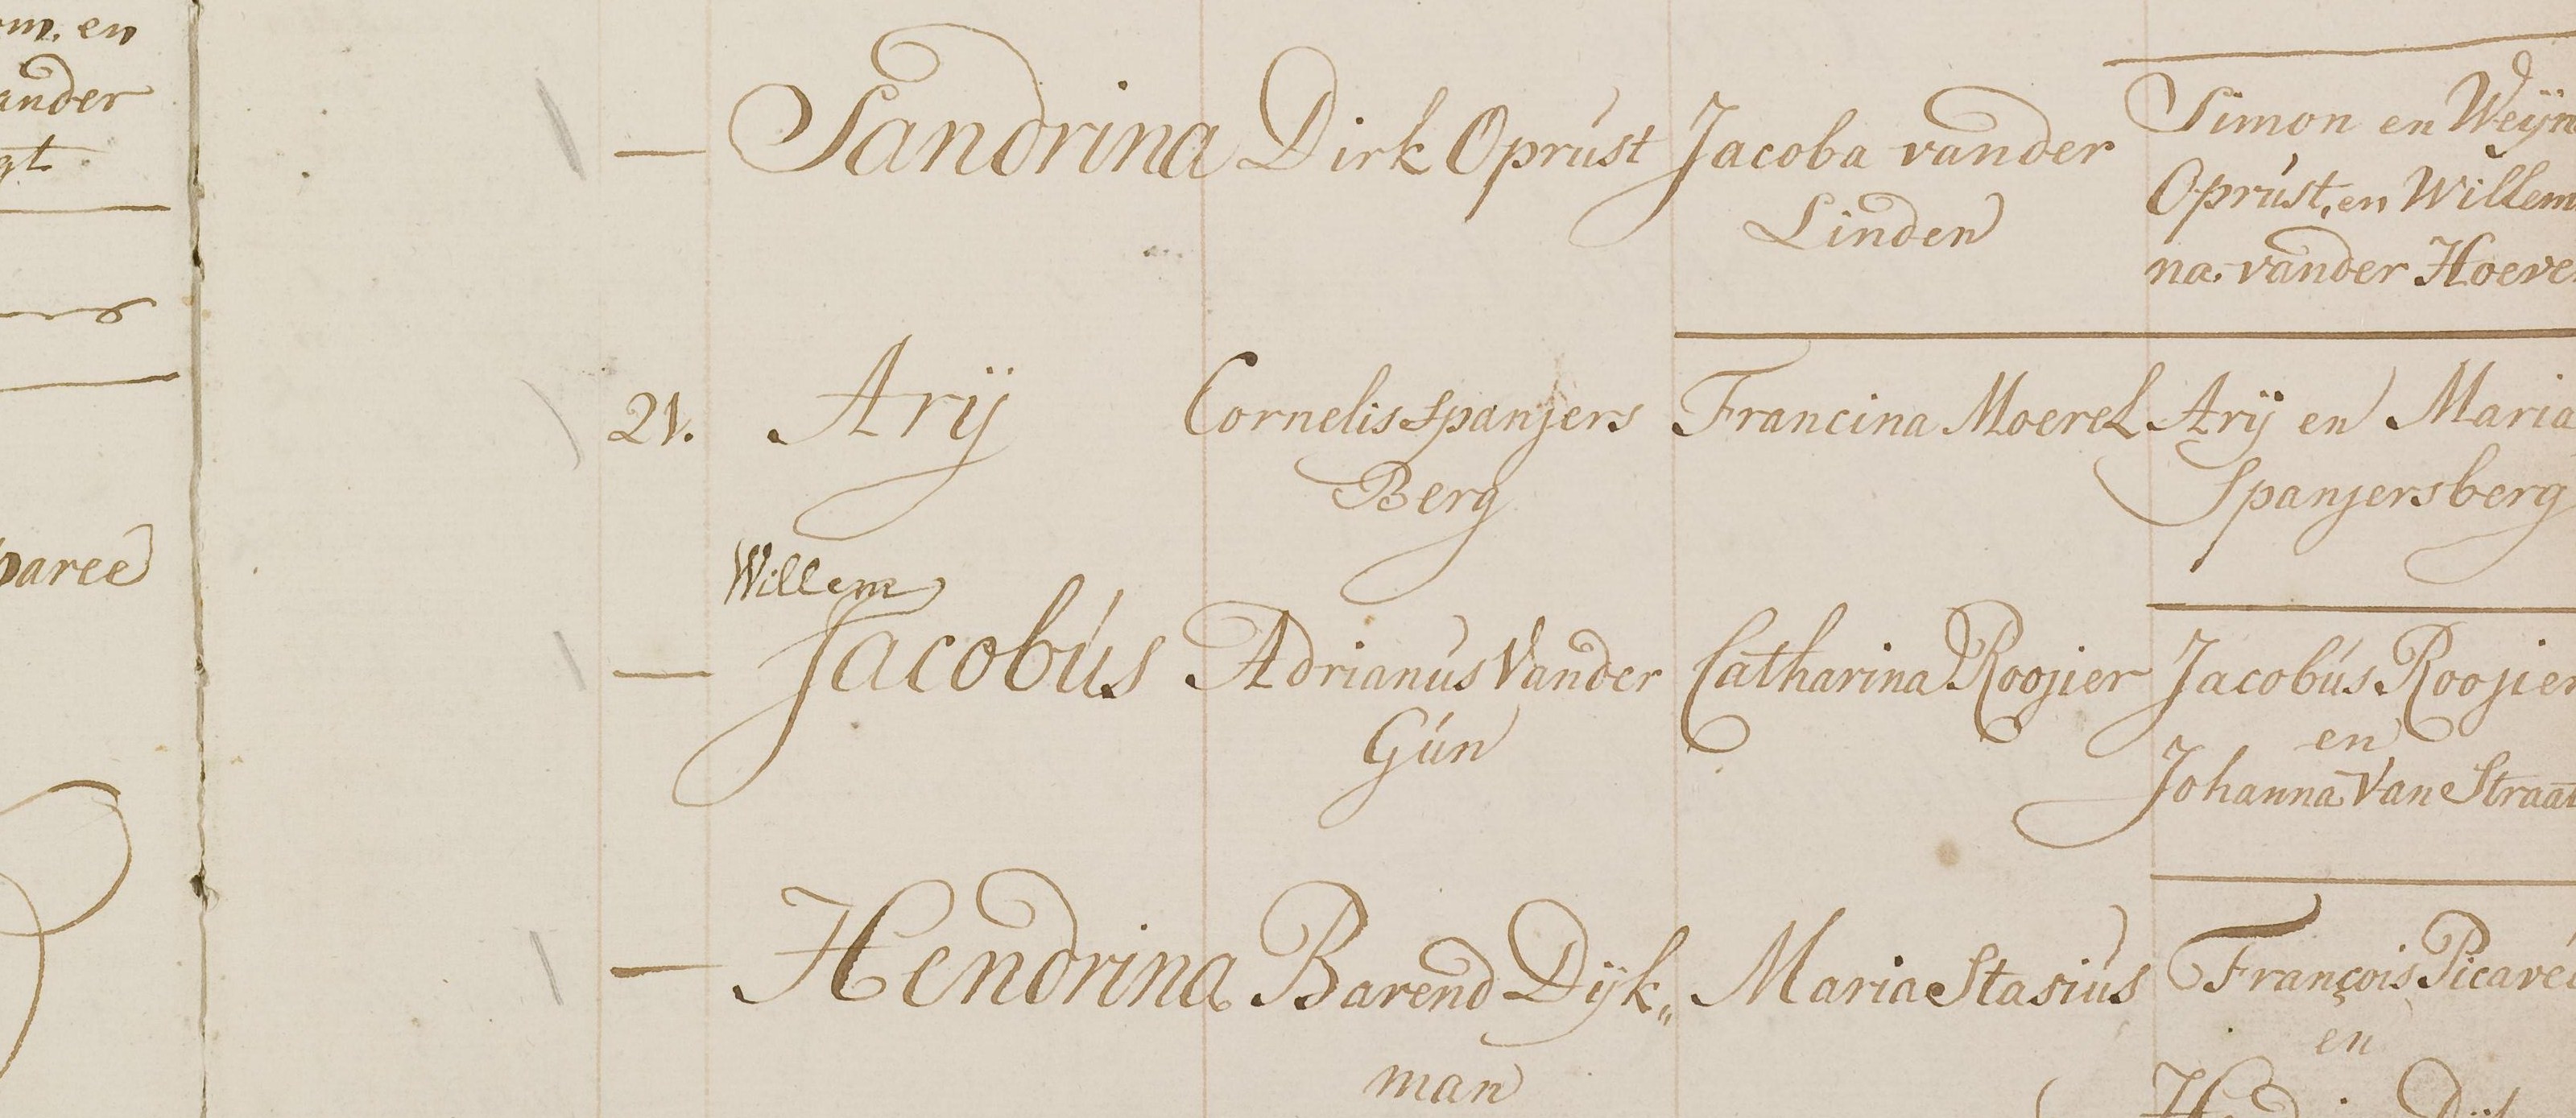 en
ander
gt
paree
— Sandrina Dirk Oprúst Jacoba vander Simon en Weÿn
Linden Oprúst, en Willem
na vander Hoeve
21. Arÿ Cornelis Spanjers Francina Moerel Arÿ en Maria
Berg Spanjersberg
Willem
— Jacobús Adrianús Vander Catharina Roojier Jacobús Roojier
Gún en
Johanna Van Straat
— Hendrina Barend Dÿk„ Maria Stasiús François Picavé
man en